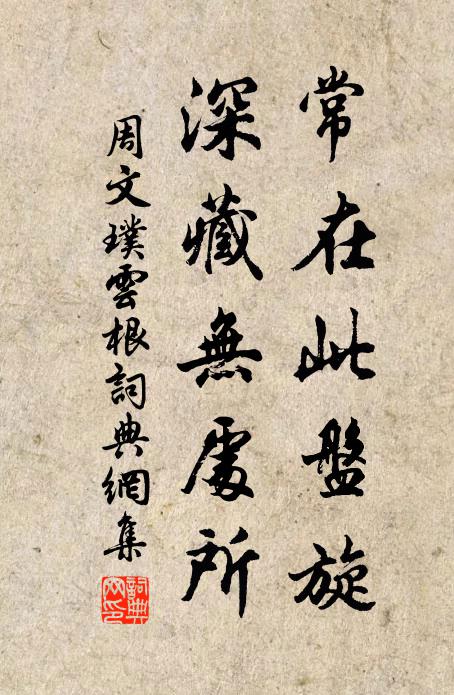 常在此盤旋
深藏無處所
周文璞雲根詞典網集
詞典網印